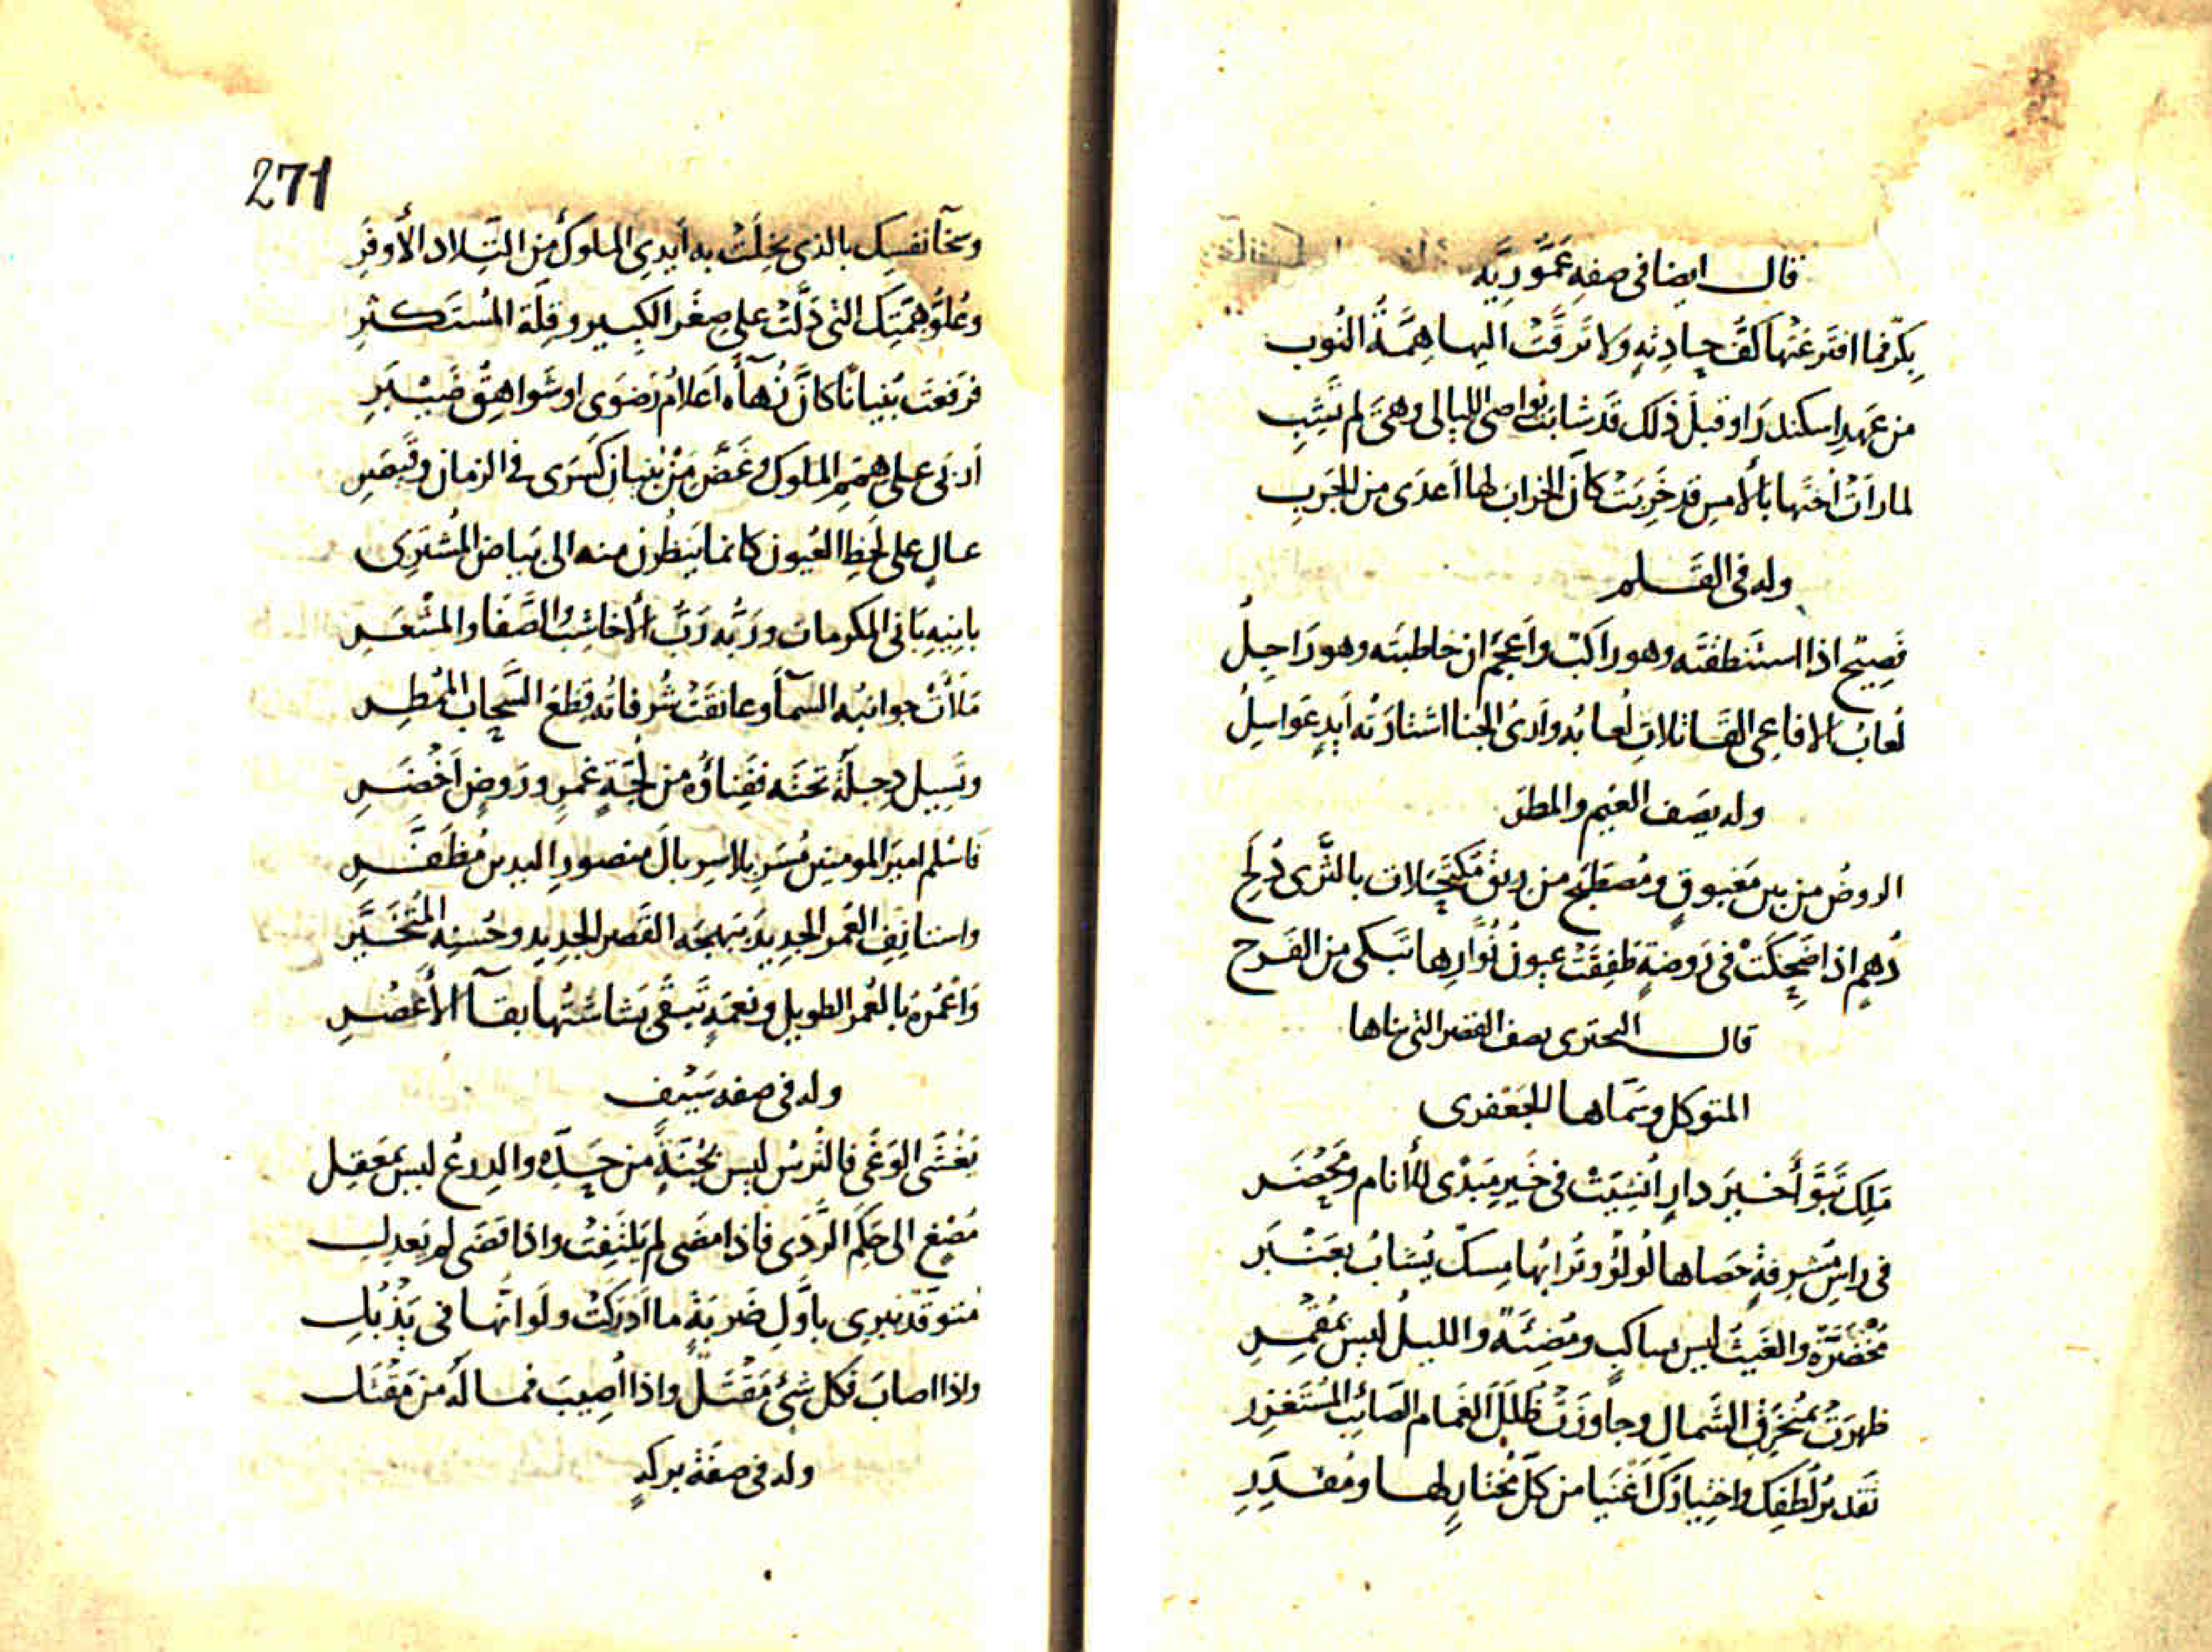 قال ايضا في صفه عَمُّورِيَّه
بِكرٌ فما افتَرعَتْها كَفُّ حادِثهٍ ولا تَرَقَّتْ اليها هِمَّةُ النُوب
من عَهدِ اسكندرَ او قبلَ ذلك قَد شابَت نَواصى الليالى وهىَ لم تَشِبِ
لما رأت أختَها بالأمسِ قد خَرِبَت كانَ الخرابُ لها اَعدَى من الجَربِ
وله فى القلم
فَصِيحٌ اذا استَنطَقتَه وهو راكبٌ واَعجمُ ان خاطبتَه وهو رَاجِلُ
لُعابُ الافاعِى القَاتلاتِ لُعابُه وأَرىُ الجنا اشتارَتْه اَيدٍ عَوَاسِلُ
وله يَصِف الغيم والمطر
الروضُ من بين مَغبوقٍ ومُصطَبحٍ من ريقِ مُكتَحَلاتٍ بالثَّرى دُلَحِ
دُهمٍ اذا ضَحِكَتْ فى رَوضةٍ طَفِقَتْ عيونُ نُوَّارِها تَبكى من الفَرح
قال البحترى يصف القصر التى بناها
المتوكل وسَمّاها الجَعْفرى
مَلِكٌ تَبَوَّأَ خيرَ دارٍ اُنشِيَتْ فى خَيرِ مَبْدًى للأنام ومَحْضَر
فى راسِ مُشرِفةٍ حَصاها لُولُؤٌ وتُرابُها مِسكٌ يُشابُ بعَنْبَر
مُخْضَرَّةٌ والغَيثُ ليس بساكبٍ ومُضِئَةٌ والليلُ ليس بمُقْمِرِ
ظهرَتْ بمُنخَرَقِ الشَّمال وجاوَزَتْ ظُلَلَ الغَمام الصَائبِ المُستَغزِر
تَقديرُ لُطفِك واختِيارُك اَغْنَيا من كلِّ مُختارٍ لها ومُقدِّرِ
271
وسَخآ نفسِك بالذى بخِلَتْ به أيدِى الملوكِ من التِّلادِ الأَوفَرِ
وعُلوُّ هِمّتِك التى دَلَّتْ على صِغَر الكبير وقِلّة المُستَكثِرِ
فَرفعتَ بُنيانًا كأنَّ زُهآءَه اَعلامُ رَضوَى او شَواهِقُ ضَيْبَرِ
أَزرَى على هِمَمِ الملوك وغَضَّ مِنْ بُنيانِ كِسرَى فى الزمان وقَيصَرِ
عالٍ على لَحظِ العُيون كانما يَنظُرن منه الى بَياض المُشتَرِى
بانِيهِ بَانى المكرمات ورَبُّه رَبُّ الاخاشِبِ والصَّفا والمَشعَرِ
مَلأتْ جوانبُه السّمآءَ وعانقَتْ شُرفاتُه قِطَعَ السَّحابِ المُمطِرِ
وتَسِيل دِجلَةُ تحتَه ففِناؤُه من لُجّةٍ غَمرٍ ورَوضٍ اَخْضَرِ
فاسْلم اميرَ المومنين مُسَربلًا سِربالَ منصورِ اليدين مُظَفَّرِ
واستانِفِ العُمرَ الجدِيدَ ببَهجَه القَصرِ الجديدِ وحُسنِه المُتَخَيَّرِ
وَاعْمُرْهُ بالعُمر الطويلِ ونعمَةٍ تَبقَى بَشاشَتُها بقآءَ الأَعصُرِ
وله فى صفه سَيْف
يَغْشَى الوَغَى فالتُّرسُ ليس بجُنَّةٍ من حَدِّه والدِرعُ ليس بمَعقِلِ
مُصْغٍ الى حُكمِ الرَّدَى فاذا مَضَى لم يَلتَفِتْ واذا قضَى لم يَعدِلِ
مُتوَقّدٌ يَبرِى باوَّلِ ضَربَةٍ ما اَدرَكَتْ ولَو انّها فى يَذْبُلِ
واذا اصابَ فكل شئٍ مَقْتَلٌ واذا اُصِيبَ فما لَه من مَقْتَلِ
وله فى صفة بركهٍ